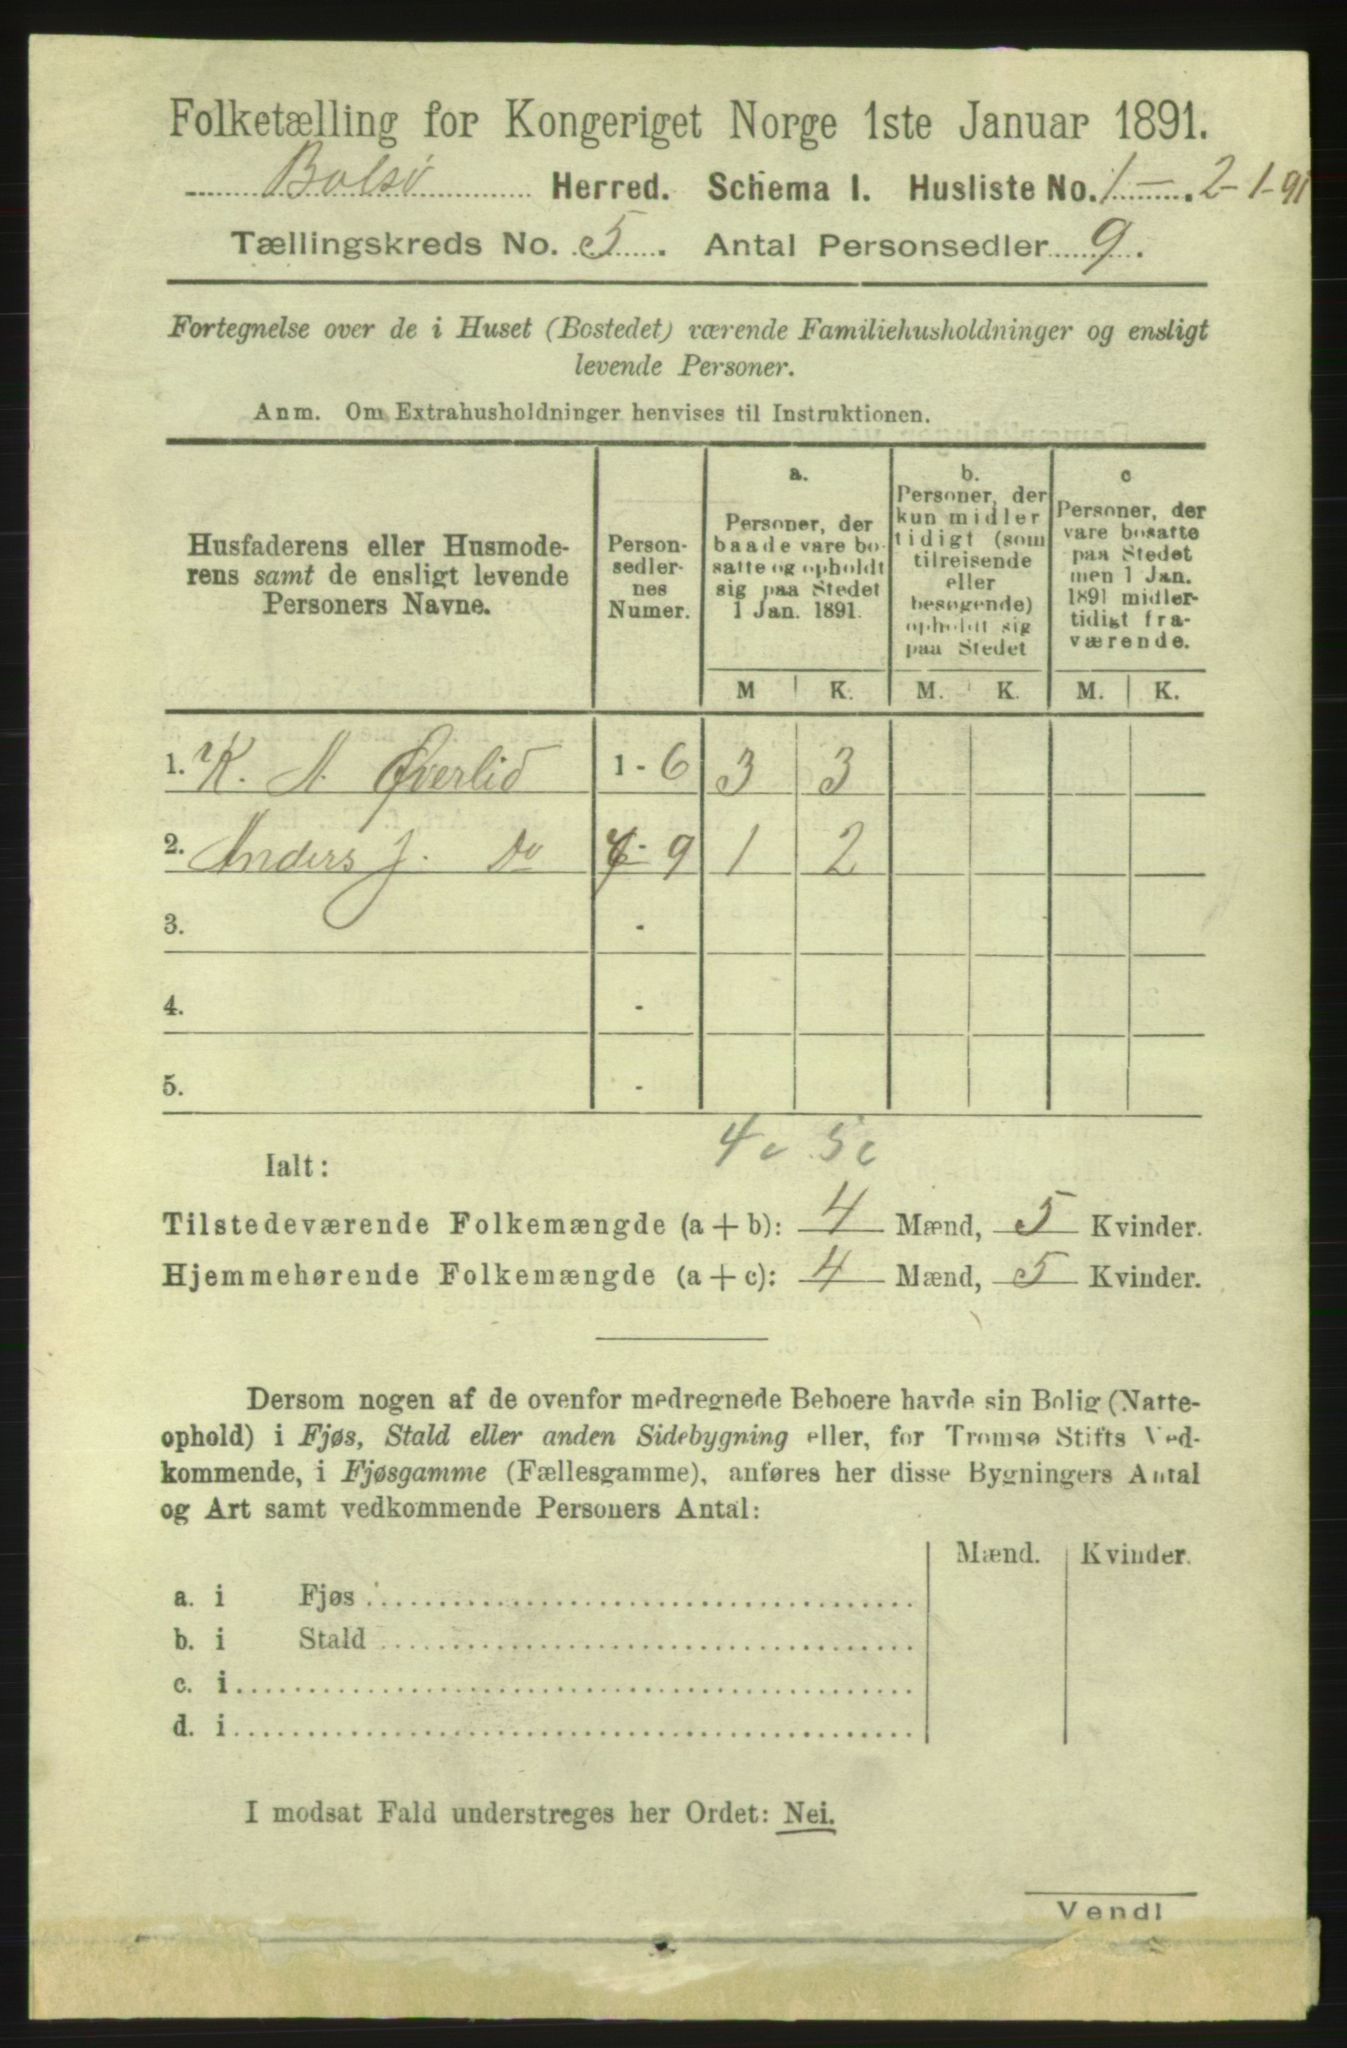 Folketælling for Kongeriget Norge 1ste Januar 1891.
Bolsø Herred. Schema I. Husliste No. 1 — . 2-1-91
Tællingskreds No. 5. Antal Personsedler 9.
Fortegnelse over de i Huset (Bostedet) værende Familiehusholdninger og ensligt
levende Personer.
Anm. Om Extrahusholdninger henvises til Instruktionen.
Husfaderens eller Husmode-
rens samt de ensligt levende
Personers Navne.
Person-
sedler-
nes
Numer.
a.
Personer, der
baade vare bo-
satte og opholdt
sig paa Stedet
1 Jan. 1891.
b.
Personer, der
kun midler
tidigt (som
tilreisende
eller
besøgende)
opholdt sig
paa Stedet
c
Personer, der
vare bosatte
paa Stedet
men 1 Jan.
1891 midler-
tidigt fra-
værende.
M K. M. K. M. K.
1. K. A. Øverlid 1 - 6 3 3
2. Anders J. Do 7 - 9 1 2
3. -
4. -
5. -
4 c 5 c
Ialt:
Tilstedeværende Folkemængde (a + b): 4 Mænd, 5 Kvinder.
Hjemmehørende Folkemængde (a + c): 4 Mænd, 5 Kvinder.
Dersom nogen af de ovenfor medregnede Beboere havde sin Bolig (Natte-
ophold) i Fjøs, Stald eller anden Sidebygning eller, for Tromsø Stifts Ved-
kommende, i Fjøsgamme (Fællesgamme), anføres her disse Bygningers Antal
og Art samt vedkommende Personers Antal:
Mænd. Kvinder.
a. i Fjøs
b. i Stald
c. i
d. i
I modsat Fald understreges her Ordet: Nei.
Vend!